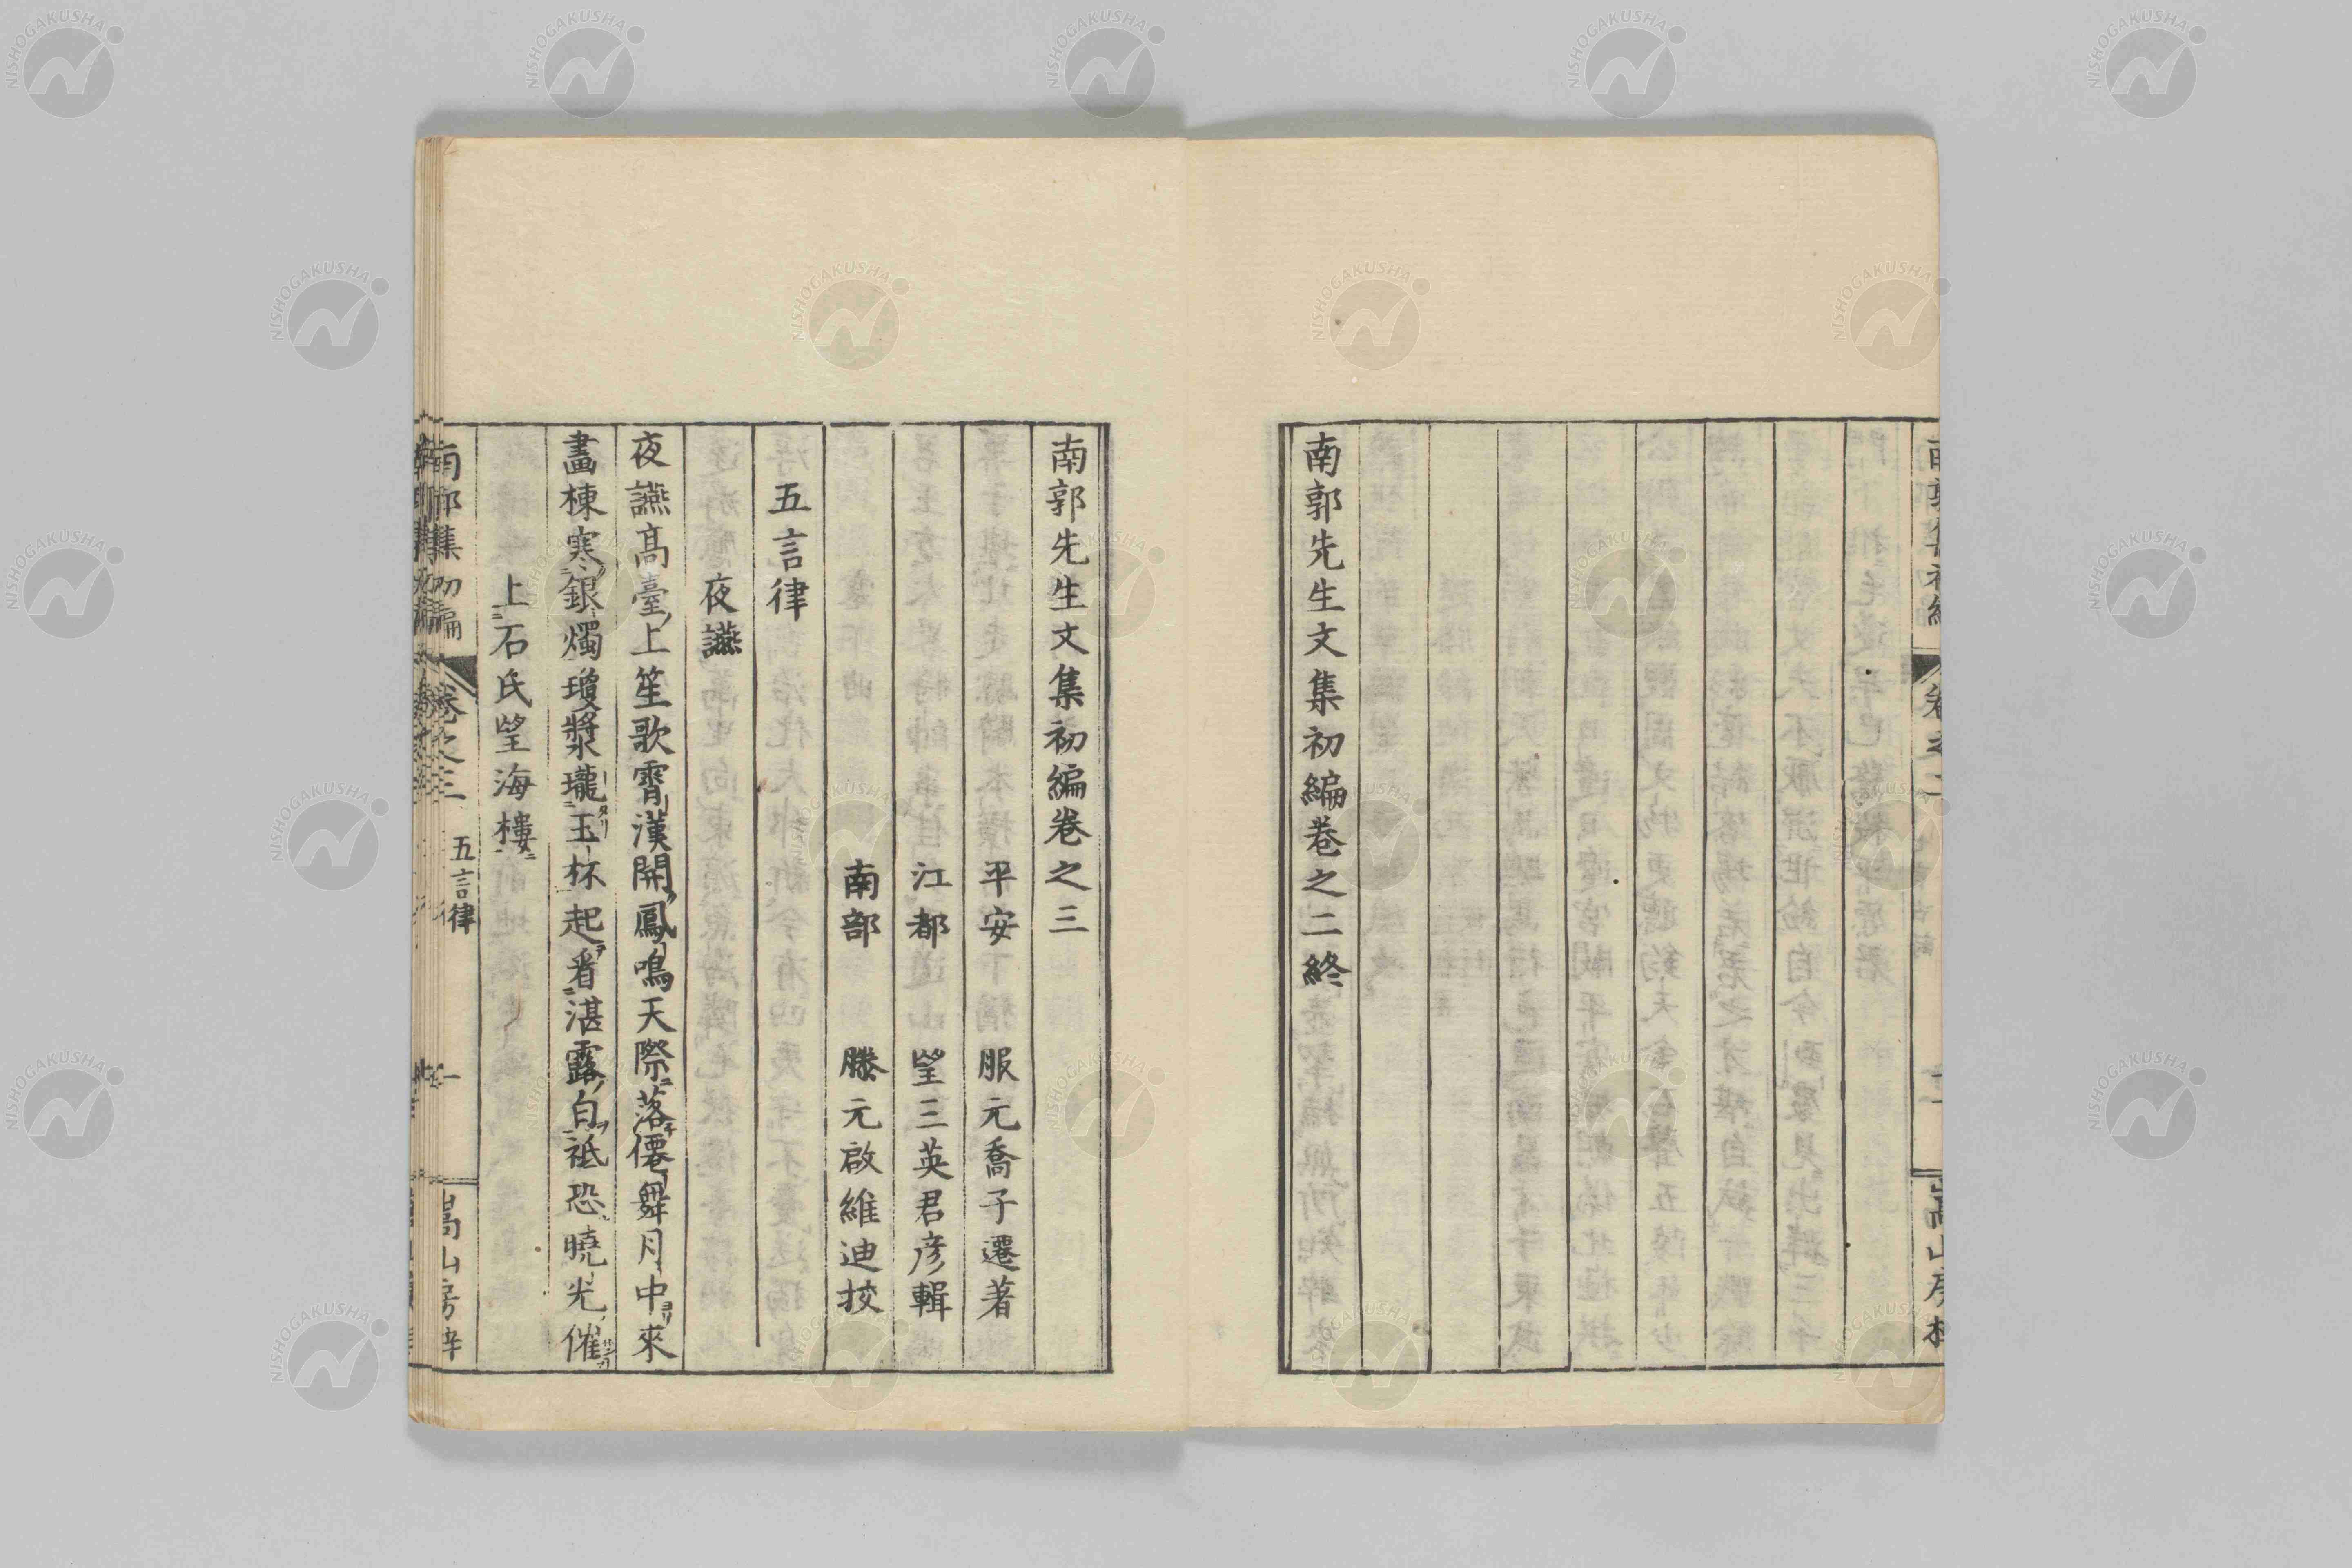 南郭先生文集初編巻之二終
南郭先生文集初編巻之三
平安 服元喬子遷著
江都 望三英君彦輯
南部 滕元啟維迪挍
五言律
夜讌
夜讌高臺上笙歌霄漢開鳳鳴天際落僊舞月中來
畵棟寒銀燭瓊漿瓏玉杯起看湛露白祗恐曉光催
上石氏望海樓
南郭集初編 巻之三 五言律 一 嵩山房梓
NISHOGAKUSHA